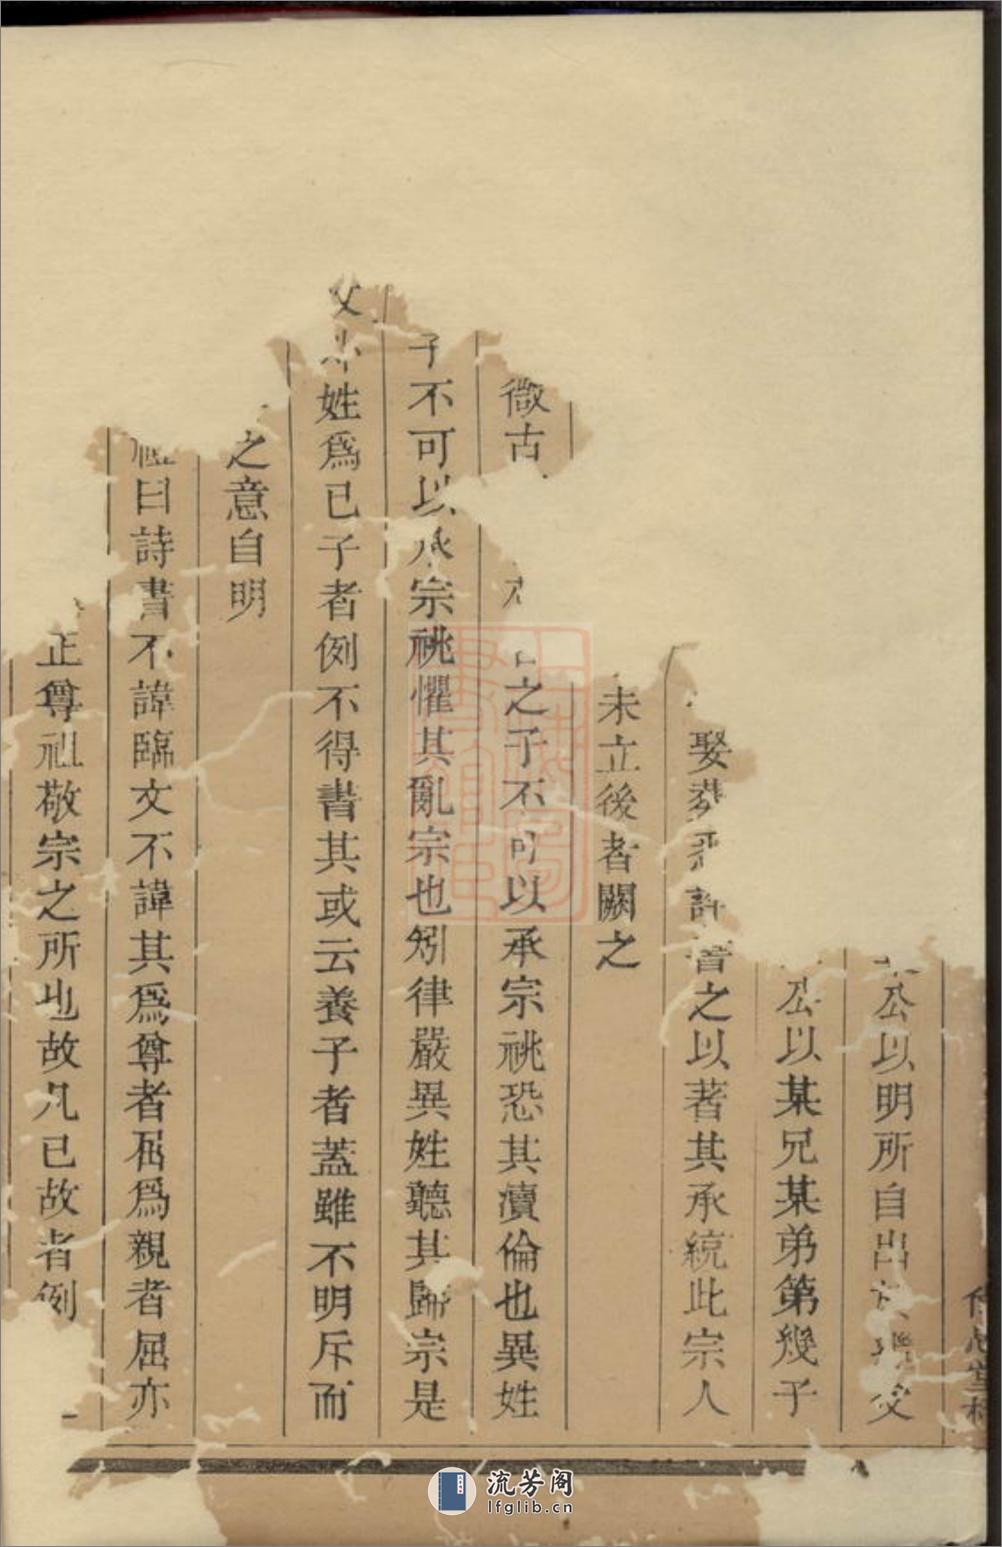 公以明所自出
公以某兄某弟第幾子
娶
之以著其承統此宗人
未立後者闕之
微古
之子不可以承宗祧恐其瀆倫也異姓
子不可以承宗祧懼其亂宗也矧律嚴異姓聽其歸宗是
姓爲已子者例不得書其或云養子者蓋雖不明斥而
之意自明
曰詩書不諱臨文不諱其爲尊者屈爲親者屈亦
正尊祖敬宗之所也故凡已故者例
流芳阁
lfglib.cn